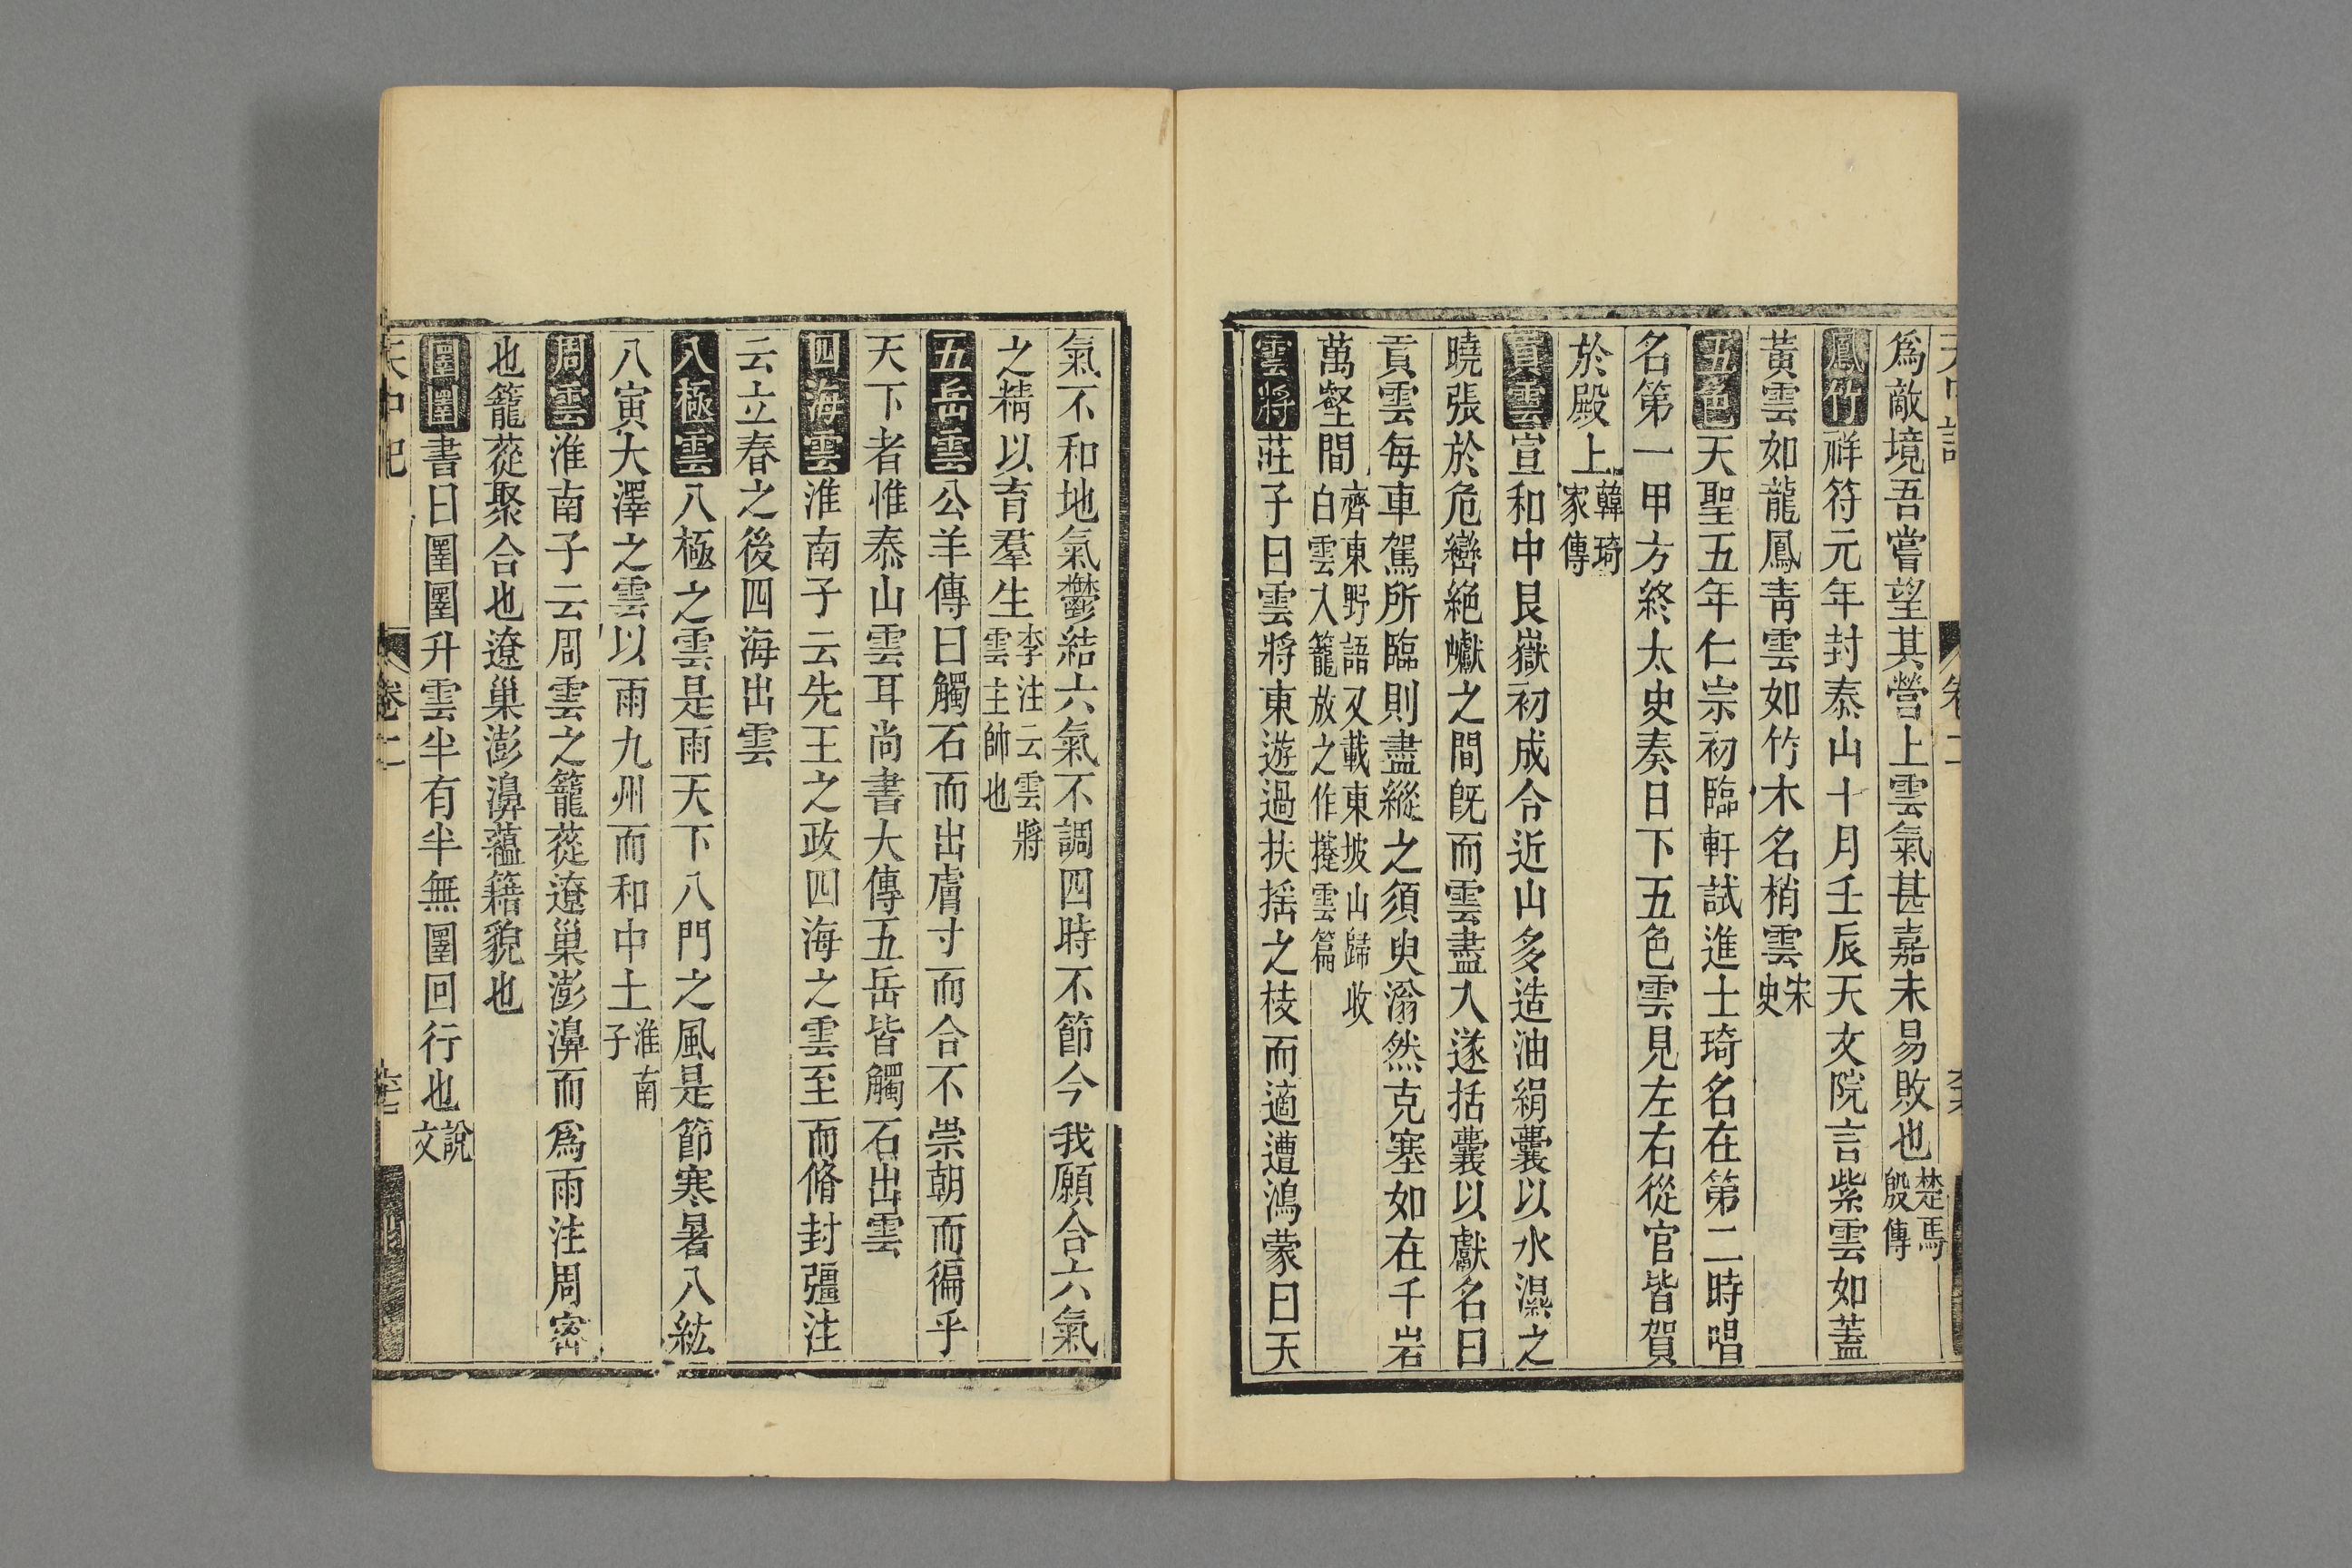 爲敵境吾嘗望其營上雲氣甚嘉未易敗也楚馬殷傳
鳳竹祥符元年封泰山十月壬辰天文院言紫雲如蓋
黃雲如龍鳳靑雲如竹木名梢雲宋史
五色天聖五年仁宗初臨軒試進士琦名在第二時唱
名第一甲方終太史奏日下五色雲見左右從官皆賀
於殿上韓琦家傳
貢雲宣和中艮嶽初成令近山多造油絹囊以水濕之
曉張於危巒絕巘之間旣而雲盡入遂括囊以獻名曰
貢雲每車駕所臨則盡縱之須臾滃然充塞如在千岩
萬壑間齊東野語又載東坡山歸收白雲入籠放之作攓雲篇
雲將莊子曰雲將東遊過扶搖之枝而適遭鴻蒙曰天
氣不和地氣鬱結六氣不調四時不節今我願合六氣
之精以育羣生李注云雲將雲主帥也
五岳雲公羊傳曰觸石而出膚寸而合不崇朝而徧乎
天下者惟泰山雲耳尚書大傳五岳皆觸石出雲
四海雲淮南子云先王之政四海之雲至而脩封疆注
云立春之後四海出雲
八極雲八極之雲是雨天下八門之風是節寒暑八紘
八寅大澤之雲以雨九州而和中土淮南子
周雲淮南子云周雲之籠蓯遼巢澎濞而爲雨注周密
也籠蓯聚合也遼巢澎濞蘊籍貌也
圛圛書曰圛圛升雲半有半無圛回行也說文
天中記
卷二